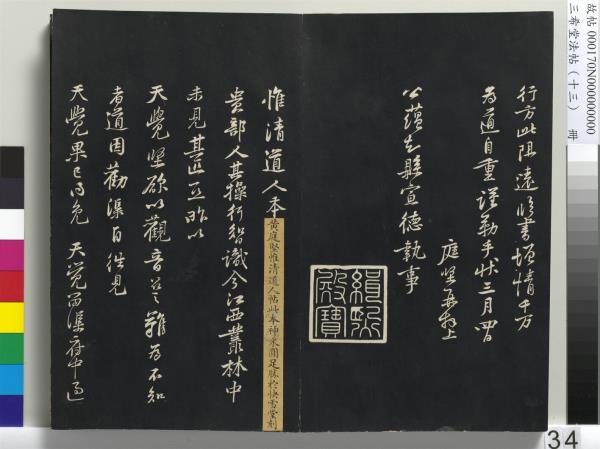 行方此阻遠臨書增情千万
為道自重謹勒手狀三月四日
庭堅再拜上
公蘊知縣宣德執事
緝熙殿寶
惟清道人本
黃庭堅惟清道人帖此本神采圓足勝於快雪堂刻
貴部人其操行智識今江西叢林中
未見其匹亞昨以
天覺堅欲以觀音召之難為不知
者道因勸渠自往見
天覺果已得免 天覺留渠府中過
故帖 000170N000000000
三希堂法帖(十三) 冊
34